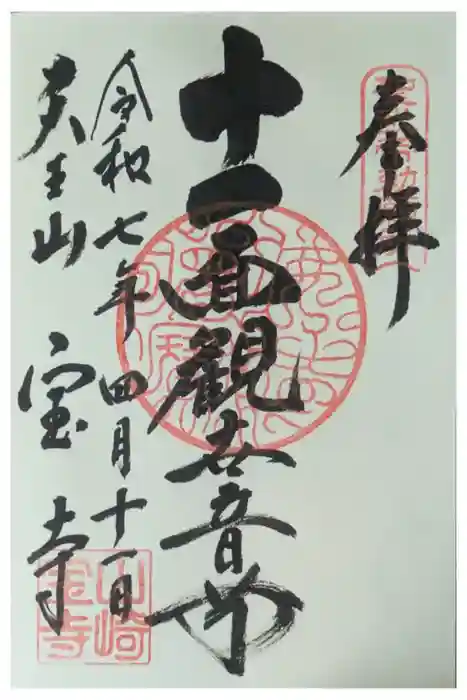 奉拝
十一面観世音菩
令和七年四月十一日
天王山 宝寺
山崎
宝寺